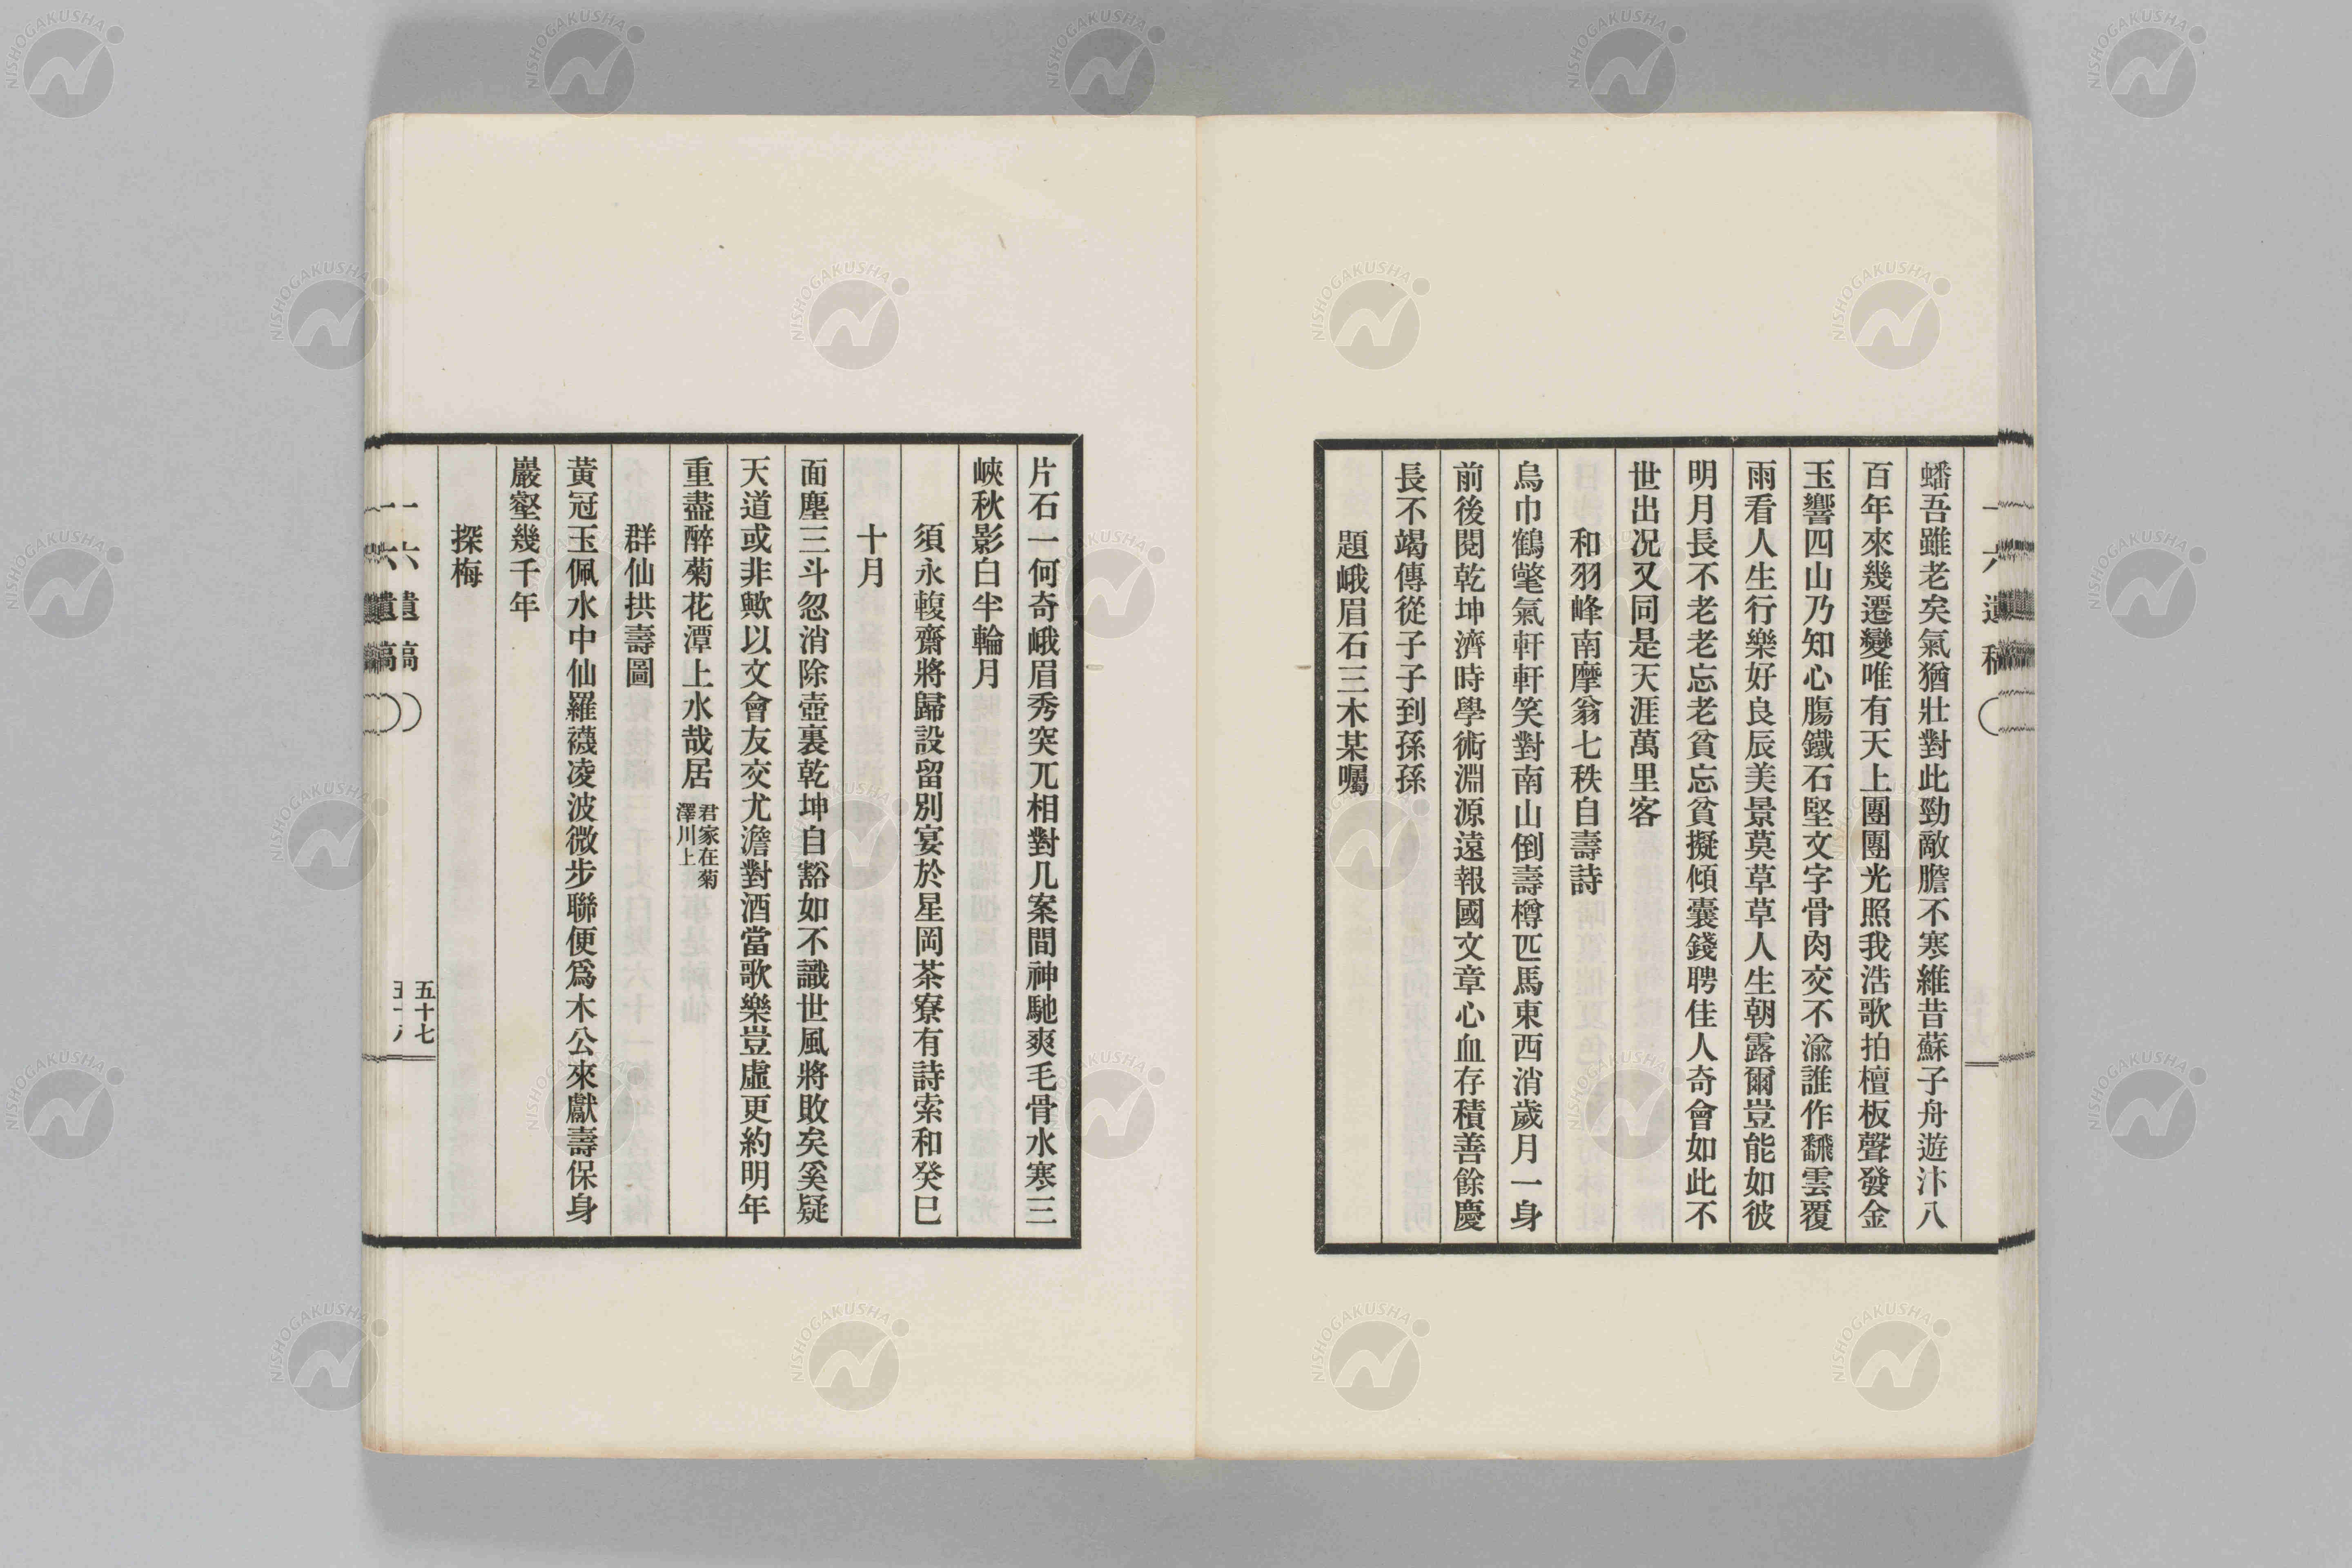 蟠吾雖老矣氣猶壯對此勁敵膽不寒維昔蘇子舟遊汴八
百年來幾遷變唯有天上團團光照我浩歌拍檀板聲發金
玉響四山乃知心膓鐵石堅文字骨肉交不渝誰作飜雲覆
雨看人生行樂好良辰美景莫草草人生朝露爾豈能如彼
明月長不老老忘老貧忘貧擬傾囊錢聘佳人奇會如此不
世出況又同是天涯萬里客
和羽峰南摩翁七秩自壽詩
烏巾鶴氅氣軒軒笑對南山倒壽樽匹馬東西消歲月一身
前後閱乾坤濟時學術淵源遠報國文章心血存積善餘慶
長不竭傳從子子到孫孫
題峨眉石三木某囑
片石一何奇峨眉秀突兀相對几案間神馳爽毛骨水寒三
峽秋影白半輪月
須永輹齋將歸設留別宴於星岡茶寮有詩索和癸巳
十月
面塵三斗忽消除壺裏乾坤自豁如不識世風將敗矣奚疑
天道或非歟以文會友交尤澹對酒當歌樂豈虛更約明年
重盡醉菊花潭上水哉居 君家在菊
澤川上
群仙拱壽圖
黃冠玉佩水中仙羅襪凌波微步聯便爲木公來獻壽保身
巖壑幾千年
探梅
一六遺稿
五十七